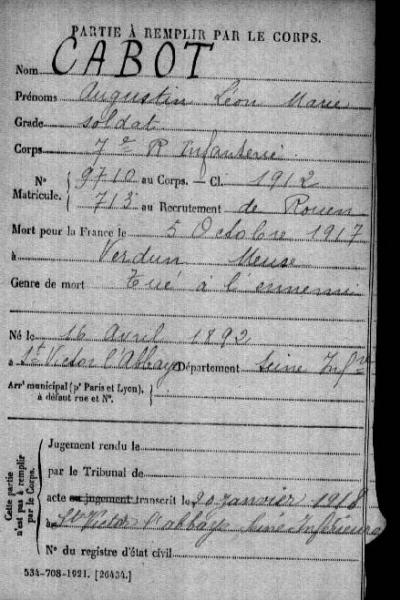 PARTIE À REMPLIR PAR LE CORPS.
Nom CABOT
Prénoms Augustin Léon Marie
Grade soldat
Corps 7e R Infanterie
N° 9710 au Corps. — Cl. 1912
Matricule. 713 au Recrutement de Rouen
Mort pour la France le 5 Octobre 1917
à Verdun Meuse
Genre de mort Tué à l'ennemi
Né le 16 Avril 1892
à St Victor l'Abbaye Département Seine Infre
Arrt municipal (pr Paris et Lyon),
à défaut rue et N°.
Cette partie n'est pas à remplir par le Corps.
Jugement rendu le
par le Tribunal de
acte ou jugement transcrit le 20 janvier 1918
à St Victor l'abbaye Seine Inférieure
N° du registre d'état civil
534-708-1921. [26434.]